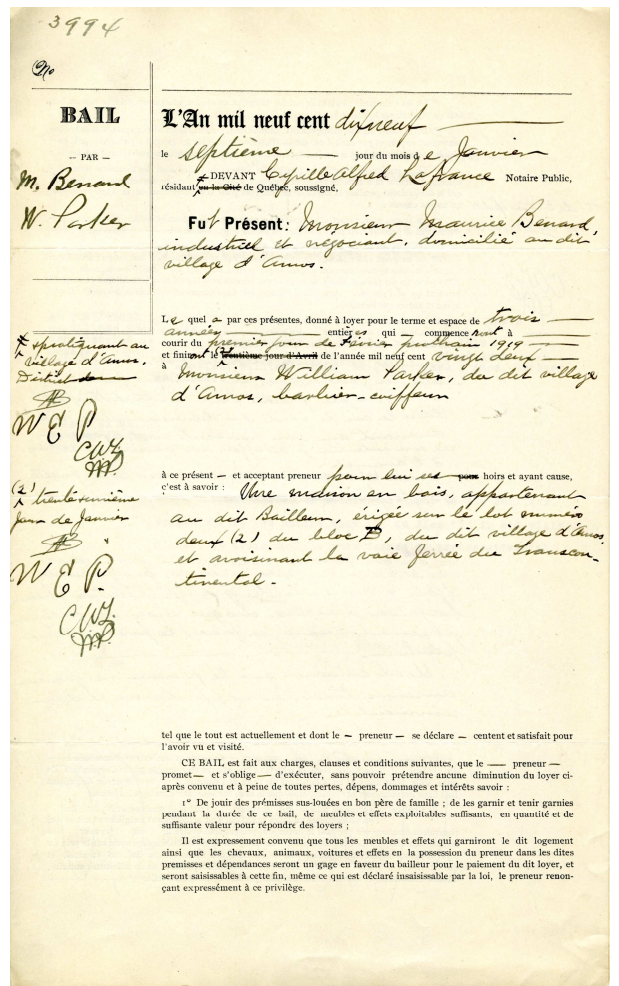 3994
No
BAIL
— PAR —
M. Benard
W. Parker
L'An mil neuf cent dixneuf
le septième — jour du mois de Janvier
DEVANT Cyrille Alfred Lafrance Notaire Public,
résidant en la Cité de Québec, soussigné,
Fut Présent: Monsieur Maurice Benard,
industriel et négociant, domicilié au dit
village d'Amos.
Le quel a par ces présentes, donné à loyer pour le terme et espace de trois —
années — entières qui — commenceront à
courir du premier jour de Février prochain 1919 —
et finiront le trentième jour d'Avril de l'année mil neuf cent vingt deux —
à Monsieur William Parker, du dit village
d'Amos, barbier-coiffeur
x pratiquant au
village d'Amos,
District
W E P
(2)
trente et unième
jour de Janvier
W E P.
à ce présent — et acceptant preneur pour lui ses pour hoirs et ayant cause,
c'est à savoir : Une maison en bois, appartenant
au dit Bailleur, érigée sur le lot numéro
deux (2) du bloc B, du dit village d'Amos,
et avoisinant la voie ferrée du Transcon-
tinental.
tel que le tout est actuellement et dont le — preneur — se déclare — centent et satisfait pour
l'avoir vu et visité.
CE BAIL est fait aux charges, clauses et conditions suivantes, que le — preneur —
promet — et s'oblige — d'exécuter, sans pouvoir prétendre aucune diminution du loyer ci-
après convenu et à peine de toutes pertes, dépens, dommages et intérêts savoir :
1° De jouir des prémisses sus-louées en bon père de famille ; de les garnir et tenir garnies
pendant la durée de ce bail, de meubles et effets exploitables suffisants, en quantité et de
suffisante valeur pour répondre des loyers ;
Il est expressement convenu que tous les meubles et effets qui garniront le dit logement
ainsi que les chevaux, animaux, voitures et effets en la possession du preneur dans les dites
premisses et dépendances seront un gage en faveur du bailleur pour le paiement du dit loyer, et
seront saisissables à cette fin, même ce qui est déclaré insaisissable par la loi, le preneur renon-
çant expressément à ce privilège.